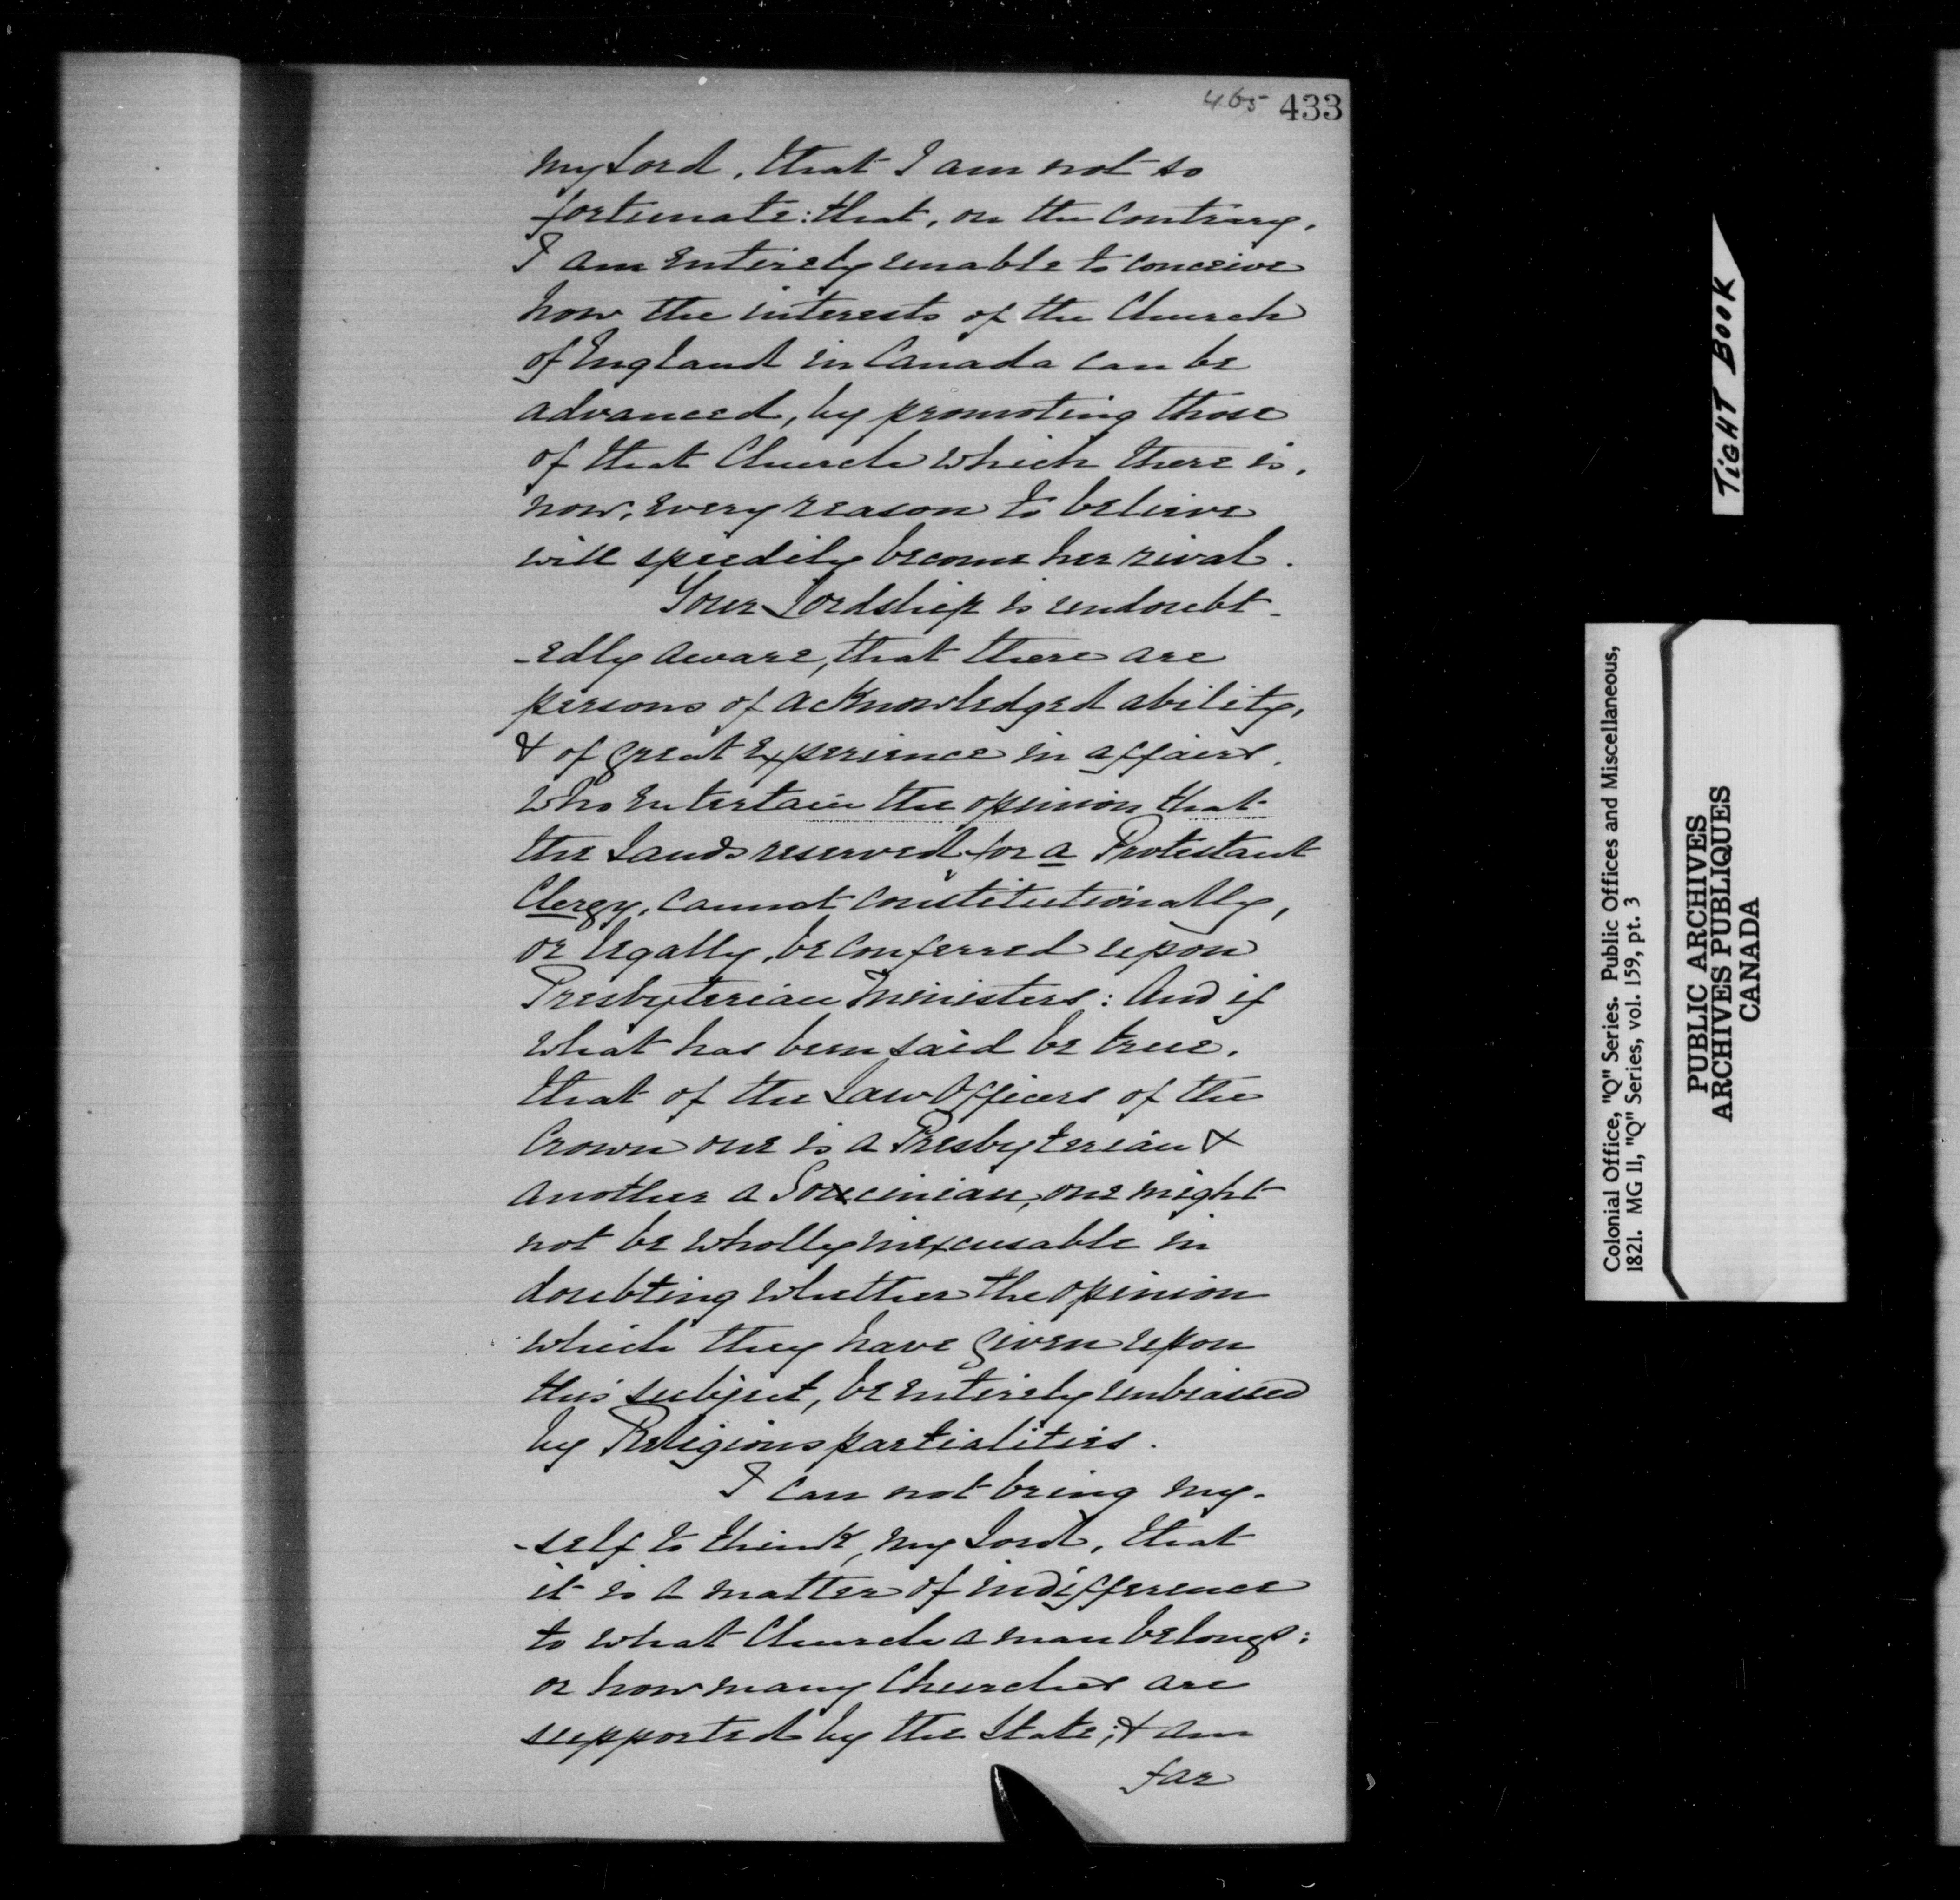 465 433
my Lord, that I am not so
fortunate: that, on the contrary,
I am entirely unable to conceive
how the interests of the Church
of England in Canada can be
advanced, by promoting those
of that Church which there is,
now, every reason to believe
will speedily become her rival.
Your Lordship is undoubt-
-edly aware, that there are
persons of acknowledged ability,
& of great experience in affairs,
who entertain the opinion that
the Lands reserved for a Protestant
Clergy, cannot constitutionally,
or legally, be conferred upon
Presbyterian Ministers: And if
what has been said be true,
that of the Law Officers of the
Crown one is a Presbyterian &
another a Socinian, one might
not be wholly inexcusable in
doubting whether the opinion
which they have given upon
this subject, be entirely unbiassed
by Religious partialities.
I can not bring my-
-self to think, my Lord, that
it is a matter of indifference
to what Church a man belongs:
or how many Churches are
supported by the State; & am
far
TiGHT BOOK
Colonial Office, "Q" Series. Public Offices and Miscellaneous,
1821. MG 11, "Q" Series, vol. 159, pt. 3
PUBLIC ARCHIVES
ARCHIVES PUBLIQUES
CANADA